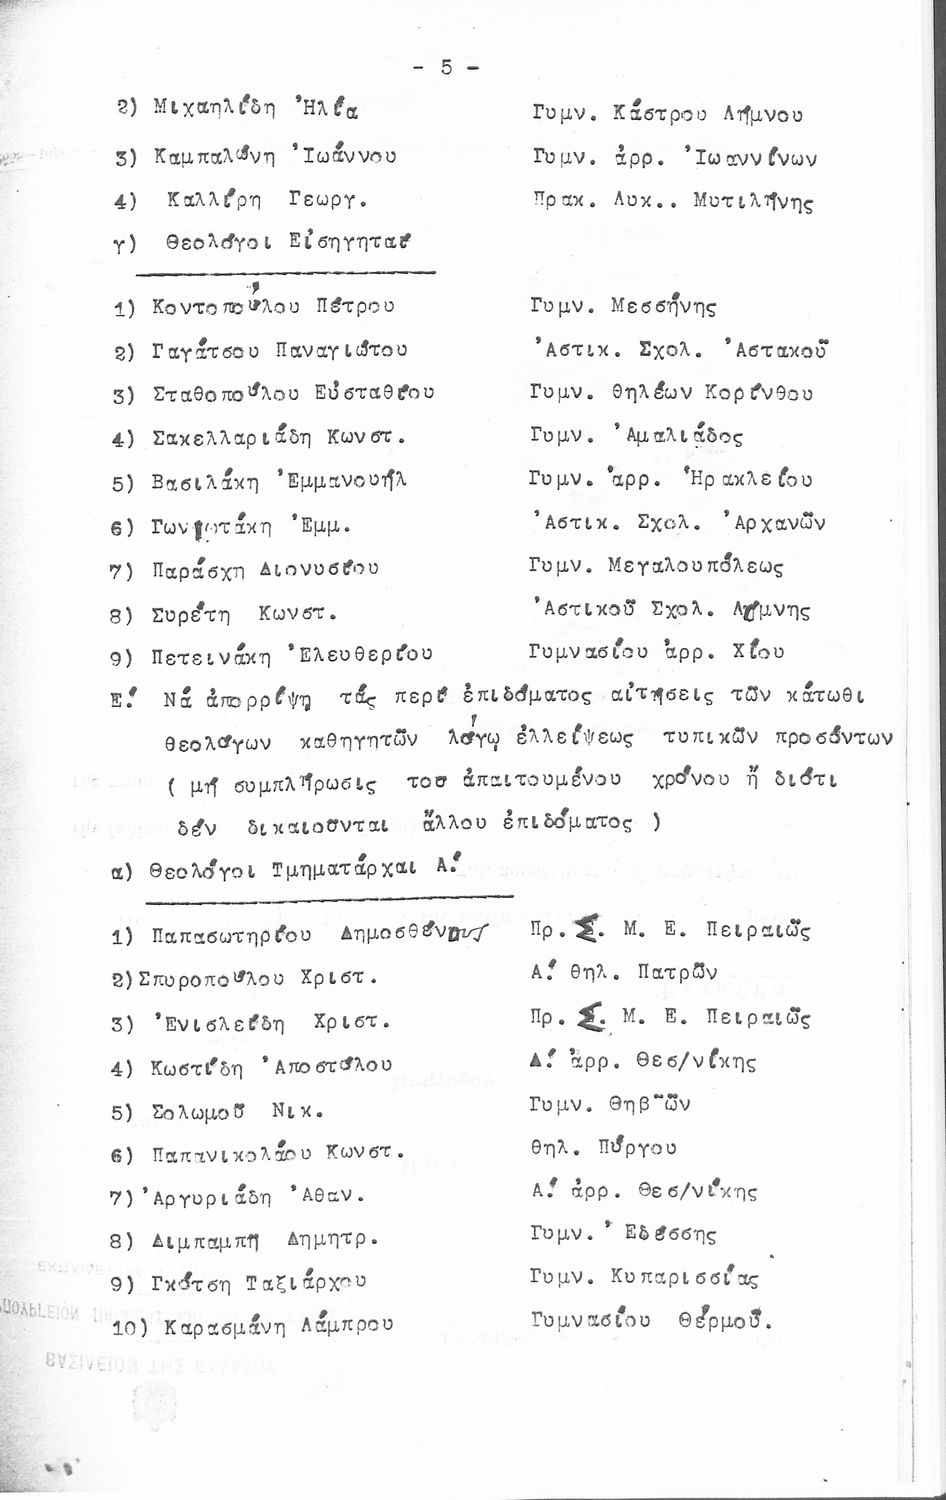 - 5 -
2) Μιχαηλίδη Ἠλία Γυμν. Κάστρου Λήμνου
3) Καμπαλώνη Ἰωάννου Γυμν. ἀρρ. Ἰωαννίνων
4) Καλλέρη Γεωργ. Πρακ. Λυκ.. Μυτιλήνης
γ) Θεολόγοι Εἰσηγηταί
1) Κοντοπούλου Πέτρου Γυμν. Μεσσήνης
2) Γαγάτσου Παναγιώτου Ἀστικ. Σχολ. Ἀστακοῦ
3) Σταθοπούλου Εὐσταθίου Γυμν. θηλέων Κορίνθου
4) Σακελλαριάδη Κωνστ. Γυμν. Ἀμαλιάδος
5) Βασιλάκη Ἐμμανουήλ Γυμν. ἀρρ. Ἡρακλείου
6) Ἐμμ. Ἀστικ. Σχολ. Ἀρχανῶν
7) Παράσχη Διονυσίου Γυμν. Μεγαλουπόλεως
8) Συρέτη Κωνστ. Ἀστικοῦ Σχολ. Λίμνης
9) Πετεινάκη Ἐλευθερίου Γυμνασίου ἀρρ. Χίου
Ε! Νά ἀπορρίψῃ τάς περί ἐπιδόματος αἰτήσεις τῶν κάτωθι
θεολόγων καθηγητῶν λόγῳ ἐλλείψεως τυπικῶν προσόντων
( μή συμπλήρωσις τοῦ ἀπαιτουμένου χρόνου ἤ διότι
δέν δικαιοῦνται ἄλλου ἐπιδόματος )
α) Θεολόγοι Τμηματάρχαι Α!
1) Παπασωτηρίου Δημοσθένους Πρ. Σ. Μ. Ε. Πειραιῶς
2)Σπυροπούλου Χριστ. Α! θηλ. Πατρῶν
3) Ἐνισλείδη Χριστ. Πρ. Σ. Μ. Ε. Πειραιῶς
4) Κωστίδη Ἀποστόλου Δ! ἀρρ. Θεσ/νίκης
5) Σολωμοῦ Νικ. Γυμν. Θηβ῀ῶν
6) Παπανικολάου Κωνστ. θηλ. Πύργου
7)Ἀργυριάδη Ἀθαν. Α! ἀρρ. Θεσ/νίκης
8) Διμπαμπῆ Δημητρ. Γυμν. Ἐδέσσης
9) Γκότση Ταξιάρχου Γυμν. Κυπαρισσίας
10) Καρασμάνη Λάμπρου Γυμνασίου Θέρμοῦ.